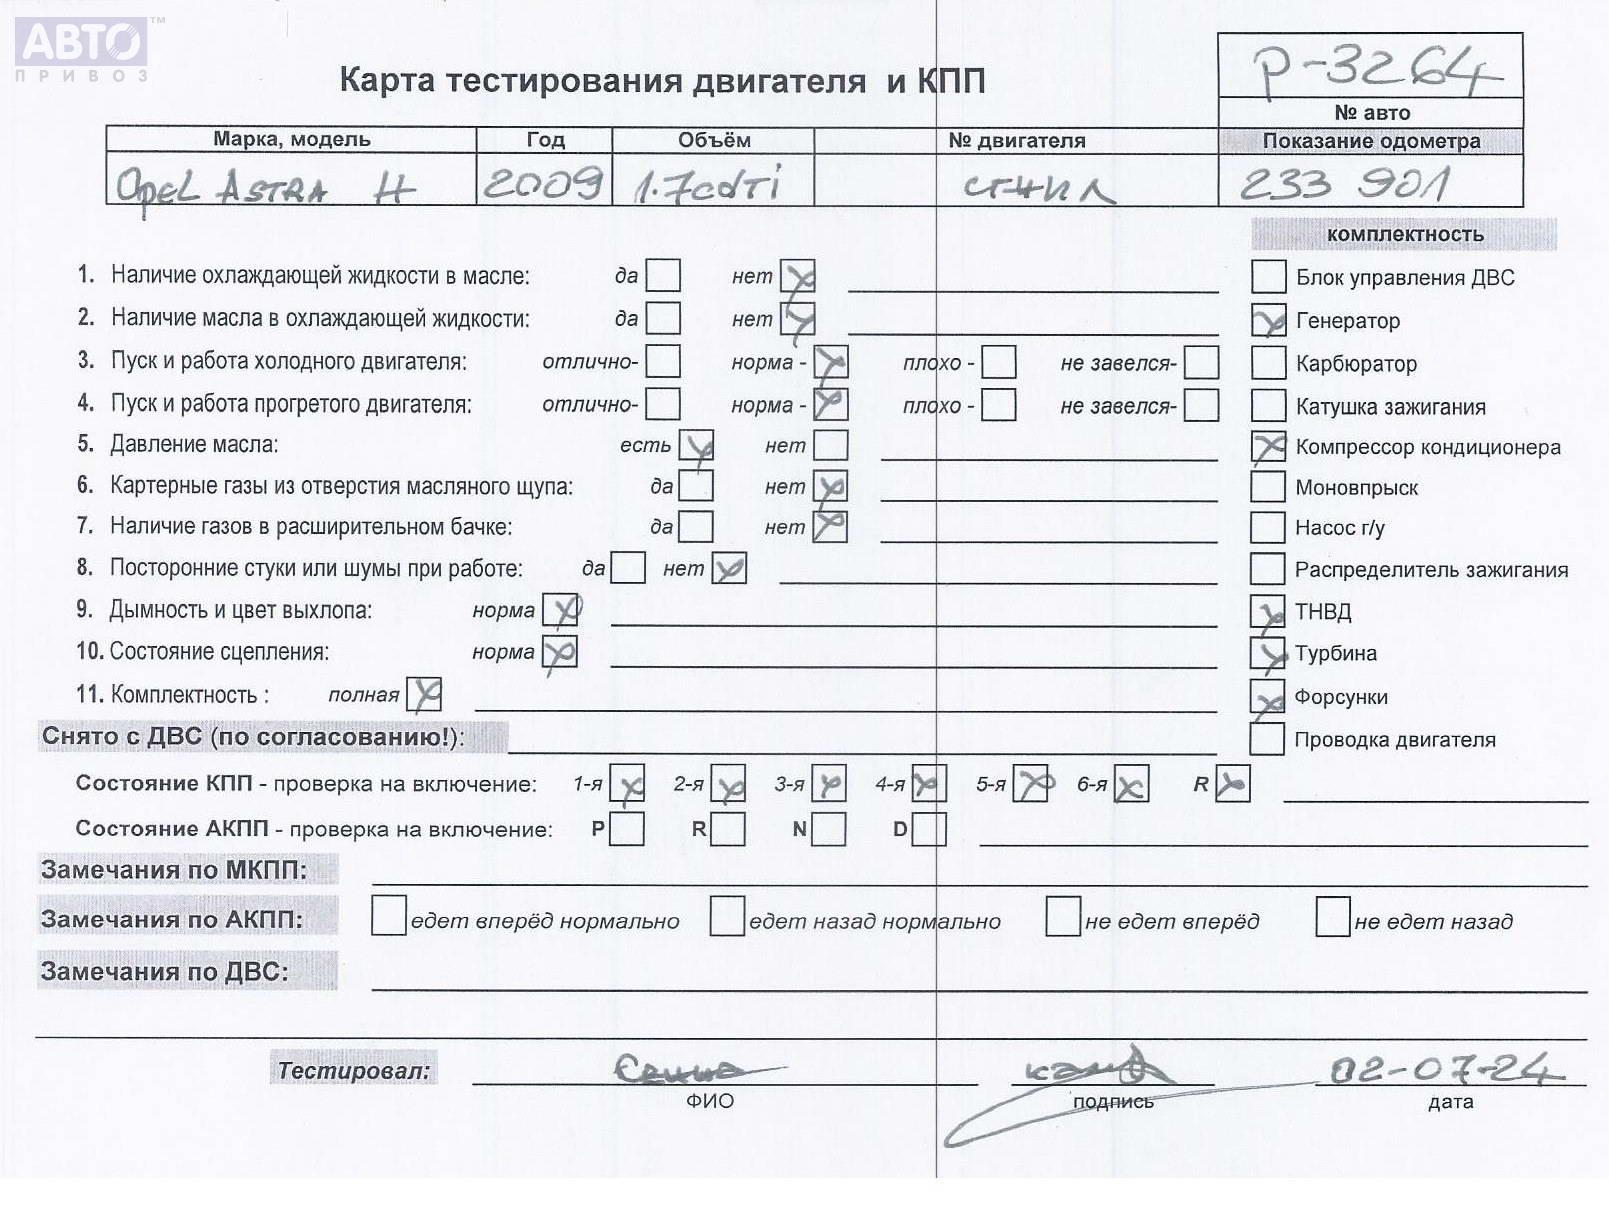 АВТО™
ПРИВОЗ
Карта тестирования двигателя и КПП
P-3264
№ авто
Марка, модель Год Объём № двигателя Показание одометра
Opel Astra H 2009 1.7cdTi 233 901
комплектность
1. Наличие охлаждающей жидкости в масле: да нет Блок управления ДВС
2. Наличие масла в охлаждающей жидкости: да нет Генератор
3. Пуск и работа холодного двигателя: отлично- норма - плохо - не завелся- Карбюратор
4. Пуск и работа прогретого двигателя: отлично- норма - плохо - не завелся- Катушка зажигания
5. Давление масла: есть нет Компрессор кондиционера
6. Картерные газы из отверстия масляного щупа: да нет Моновпрыск
7. Наличие газов в расширительном бачке: да нет Насос г/у
8. Посторонние стуки или шумы при работе: да нет Распределитель зажигания
9. Дымность и цвет выхлопа: норма ТНВД
10. Состояние сцепления: норма Турбина
11. Комплектность : полная Форсунки
Снято с ДВС (по согласованию!): Проводка двигателя
Состояние КПП - проверка на включение: 1-я 2-я 3-я 4-я 5-я 6-я R
Состояние АКПП - проверка на включение: P R N D
Замечания по МКПП:
Замечания по АКПП: едет вперёд нормально едет назад нормально не едет вперёд не едет назад
Замечания по ДВС:
Тестировал: 02-07-24
ФИО подпись дата